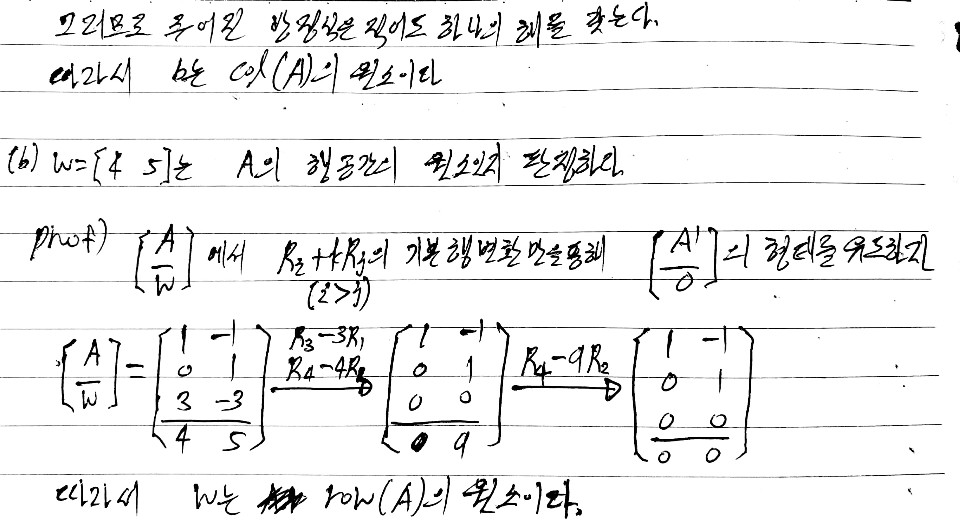 그러므로 주어진 방정식은 적어도 하나의 해를 갖는다.
따라서 b는 col(A)의 원소이다
(b) w=[4 5]는 A의 행공간의 원소인지 판정하라.
proof) [A/w] 에서 Ri+kRj의 기본행변환만을 통해 [A'/0]의 형태를 유도하자
(i>j)
[A/w] = [1 -1; 0 1; 3 -3; 4 5] R3-3R1, R4-4R1 → [1 -1; 0 1; 0 0; 0 9] R4-9R2 → [1 -1; 0 1; 0 0; 0 0]
따라서 w는 row(A)의 원소이다.